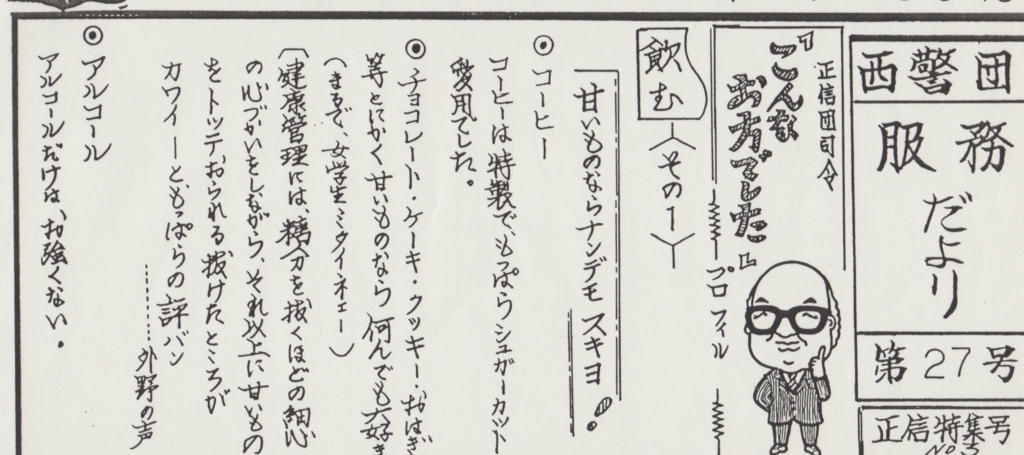 西警団
服務
だより
第27号
正信特集号
No3
正信団司令
『こんな
お方でした』
プロフィル
飲む
〈その1〉
甘いものならナンデモスキヨ!
◉コーヒー
コーヒーは特製で、もっぱらシュガーカット
愛用でした。
◉チョコレート・ケーキ・クッキー・おはぎ
等とにかく甘いものなら何んでも大好き
(まるで、女学生ミタイネェー)
〔健康管理には、糖分を抜くほどの細心
の心づかいをしながら、それ以上に甘いもの
をトッテおられる抜けたところが
カワイーと、もっぱらの評バン
外野の声
◉アルコール
アルコールだけは、お強くない。